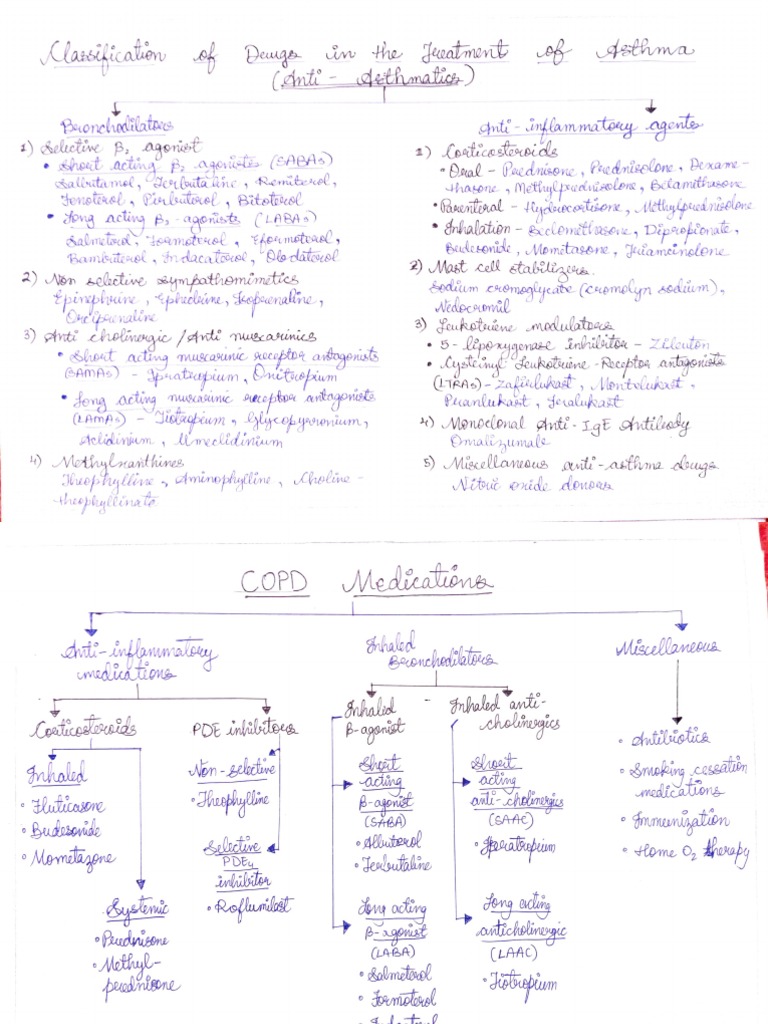 Classification of Drugs in the Treatment of Asthma
(Anti - Asthmatics)
Bronchodilators
1) Selective β2 agonist
• Short acting β2 agonists (SABAs)
Salbutamol, Terbutaline, Remiterol,
Fenoterol, Pirbuterol, Bitoterol
• Long acting β2-agonists (LABAs)
Salmeterol, Formoterol, Eformoterol,
Bambuterol, Indacaterol, Olodaterol
2) Non selective sympathomimetics
Epinephrine, Ephedrine, Isoprenaline,
Orciprenaline
3) Anti cholinergic / Anti muscarinics
• Short acting muscarinic receptor antagonists
(SAMAs) - Ipratropium, Oxitropium
• Long acting muscarinic receptor antagonists
(LAMAs) - Tiotropium, Glycopyrronium,
Aclidinium, Umeclidinium
4) Methylxanthines
Theophylline, Aminophylline, Choline-
theophyllinate
Anti-inflammatory agents
1) Corticosteroids
• Oral - Prednisone, Prednisolone, Dexame-
thasone, Methylprednisolone, Betamethasone
• Parenteral - Hydrocortisone, Methylprednisolone
• Inhalation - Beclomethasone, Dipropionate,
Budesonide, Momitasone, Triamcinolone
2) Mast cell stabilizers
Sodium cromoglycate (cromolyn sodium),
Nedocromil
3) Leukotriene modulators
• 5 - lipoxygenase inhibitor - Zileuton
• Cysteinyl Leukotriene - Receptor antagonists
(LTRAs) - Zafirlukast, Montelukast,
Pranlukast, Iralukast
4) Monoclonal Anti - IgE Antibody
Omalizumale
5) Miscellaneous anti-asthma drugs
Nitric oxide donors
COPD Medications
Anti-inflammatory
medications
Corticosteroids
Inhaled
• Fluticasone
• Budesonide
• Mometazone
Systemic
• Prednisone
• Methyl-
prednisone
PDE inhibitors
Non-selective
• Theophylline
Selective
PDE4
inhibitor
• Roflumilast
Inhaled
Bronchodilators
Inhaled
β-agonist
Short
acting
β-agonist
(SABA)
• Albuterol
• Terbutaline
Long acting
β-agonist
(LABA)
• Salmeterol
• Formoterol
Inhaled anti-
cholinergics
Short
acting
anti-cholinergics
(SAAC)
• Ipratropium
Long acting
anticholinergic
(LAAC)
• Tiotropium
Miscellaneous
• Antibiotics
• Smoking cessation
medications
• Immunization
• Home O2 therapy